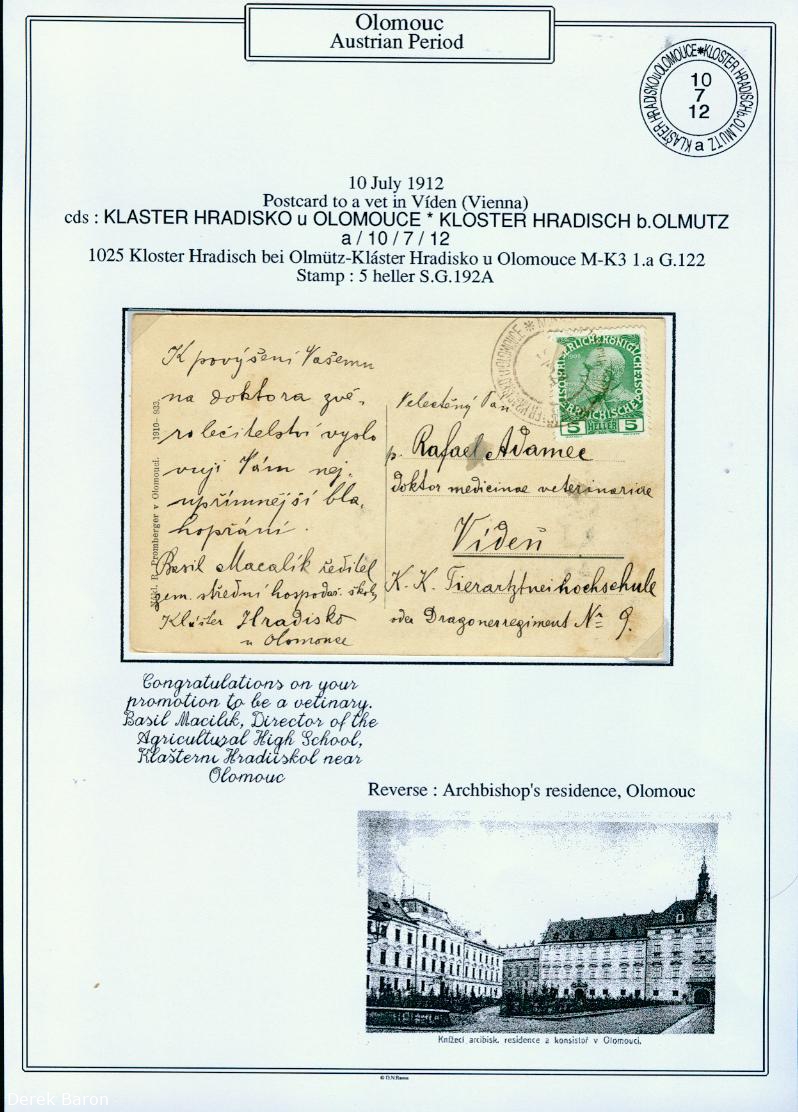 Olomouc
Austrian Period
KLAŠTER HRADISKO u OLOMOUCE * KLOSTER HRADISCH b. OLMUTZ
a
10
7
12
10 July 1912
Postcard to a vet in Víden (Vienna)
cds : KLASTER HRADISKO u OLOMOUCE * KLOSTER HRADISCH b.OLMUTZ
a / 10 / 7 / 12
1025 Kloster Hradisch bei Olmütz-Kláster Hradisko u Olomouce M-K3 1.a G.122
Stamp : 5 heller S.G.192A
K povýšení Vašemu
na doktora zvě-
rolečitelství vyslo
vuji Vám nej-
upřímnější bla-
hopřání.
Basil Macalík ředitel
zem. střední hospodář. školy
Klášter Hradisko
u Olomouce
Nákl. R. Promberger v Olomouci. 1910- 933.
5 HELLER 5
Velectěný Pan
p. Rafael Adamec
doktor medicinae veterinariae
Vídeň
K. K. Tierartztneihochschule
oder Dragonerregiment No 9.
Congratulations on your
promotion to be a vetinary.
Basil Macilik, Director of the
Agricultural High School,
Klašterni Hradiiskol near
Olomouc
Reverse : Archbishop's residence, Olomouc
Knížecí arcibisk. residence a konsistoř v Olomouci.
© D.N.Baron
Derek Baron